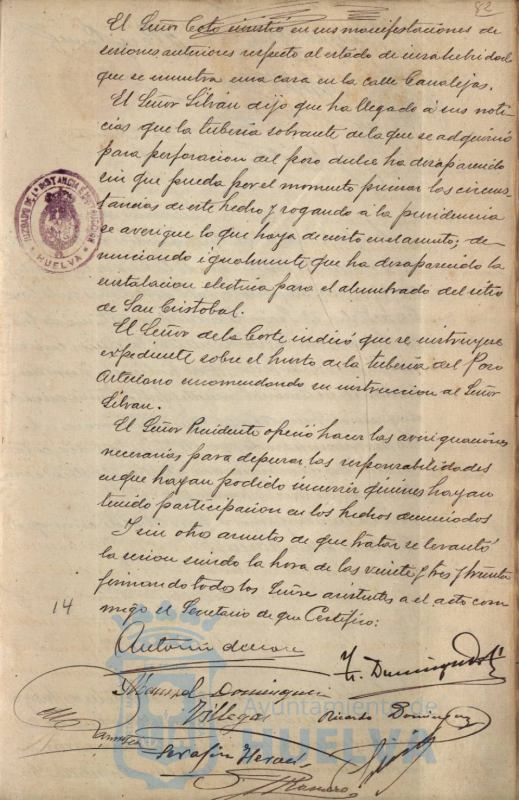 82
El Señor Coto insistió en sus manifestaciones de
sesiones anteriores respecto al estado de insalubridad
que se encuentra una casa en la calle Canalejas.
El Señor Silván dijo que ha llegado á sus noti-
cias que la tuberia sobrante de la que se adquirió
para perforacion del pozo dulce ha desaparecido
sin que pueda por el momento precisar las circuns-
tancias de este hecho y rogando á la presidencia
se averigüe lo que haya de cierto en el asunto; de-
nunciando igualmente que ha desaparecido la
instalacion electrica para el alumbrado del sitio
de San Cristobal.
El Señor de la Corte indicó que se instruyera
expediente sobre el hurto de la tuberia del Pozo
Artesiano encomendando su instruccion al Señor
Silvan.
El Señor Presidente ofreció hacer las averiguaciones
necesarias para depurar las responsabilidades
en que hayan podido incurrir quienes hayan
tenido participacion en los hechos denunciados
Y sin otros asuntos de que tratar se levantó
la sesion siendo la hora de las veinte y tres y treinta
firmando todos los Señores asistentes a el acto con-
migo el Secretario de que Certifico:
14
Antonio
Manuel Dominguez
Villegas
Ricardo Dominguez
Serafin
JUZGADO DE 1ª INSTANCIA E INSTRUCCION
HUELVA
Ayuntamiento de
HUELVA